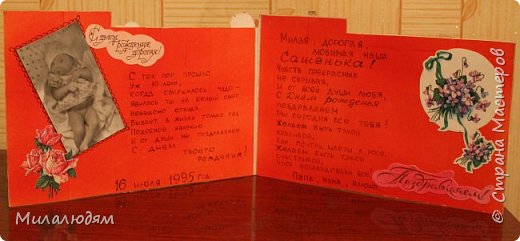 С днём
рождения,
дорогая!
С тех пор прошло
уж 10 лет,
когда свершилось чудо –
явилась ты на белый свет
неведомо откуда.
Бывает в жизни только раз
подобное явленье
и от души мы поздравляем
с днём
твоего
рождения!
16 июля 1995 год.
Милая, дорогая,
любимая наша
Сашенька!
Чувств прекрасных
не скрывая,
и от всей души любя,
с днём рождения
поздравляем
мы сегодня все тебя!
Желаем быть такой
красивой,
как почти цветы в росе,
желаем быть такой
счастливой,
чтоб позавидовали все.
Папа, мама,
Поздравляем!
Милалюдям
© Страна Мастеров